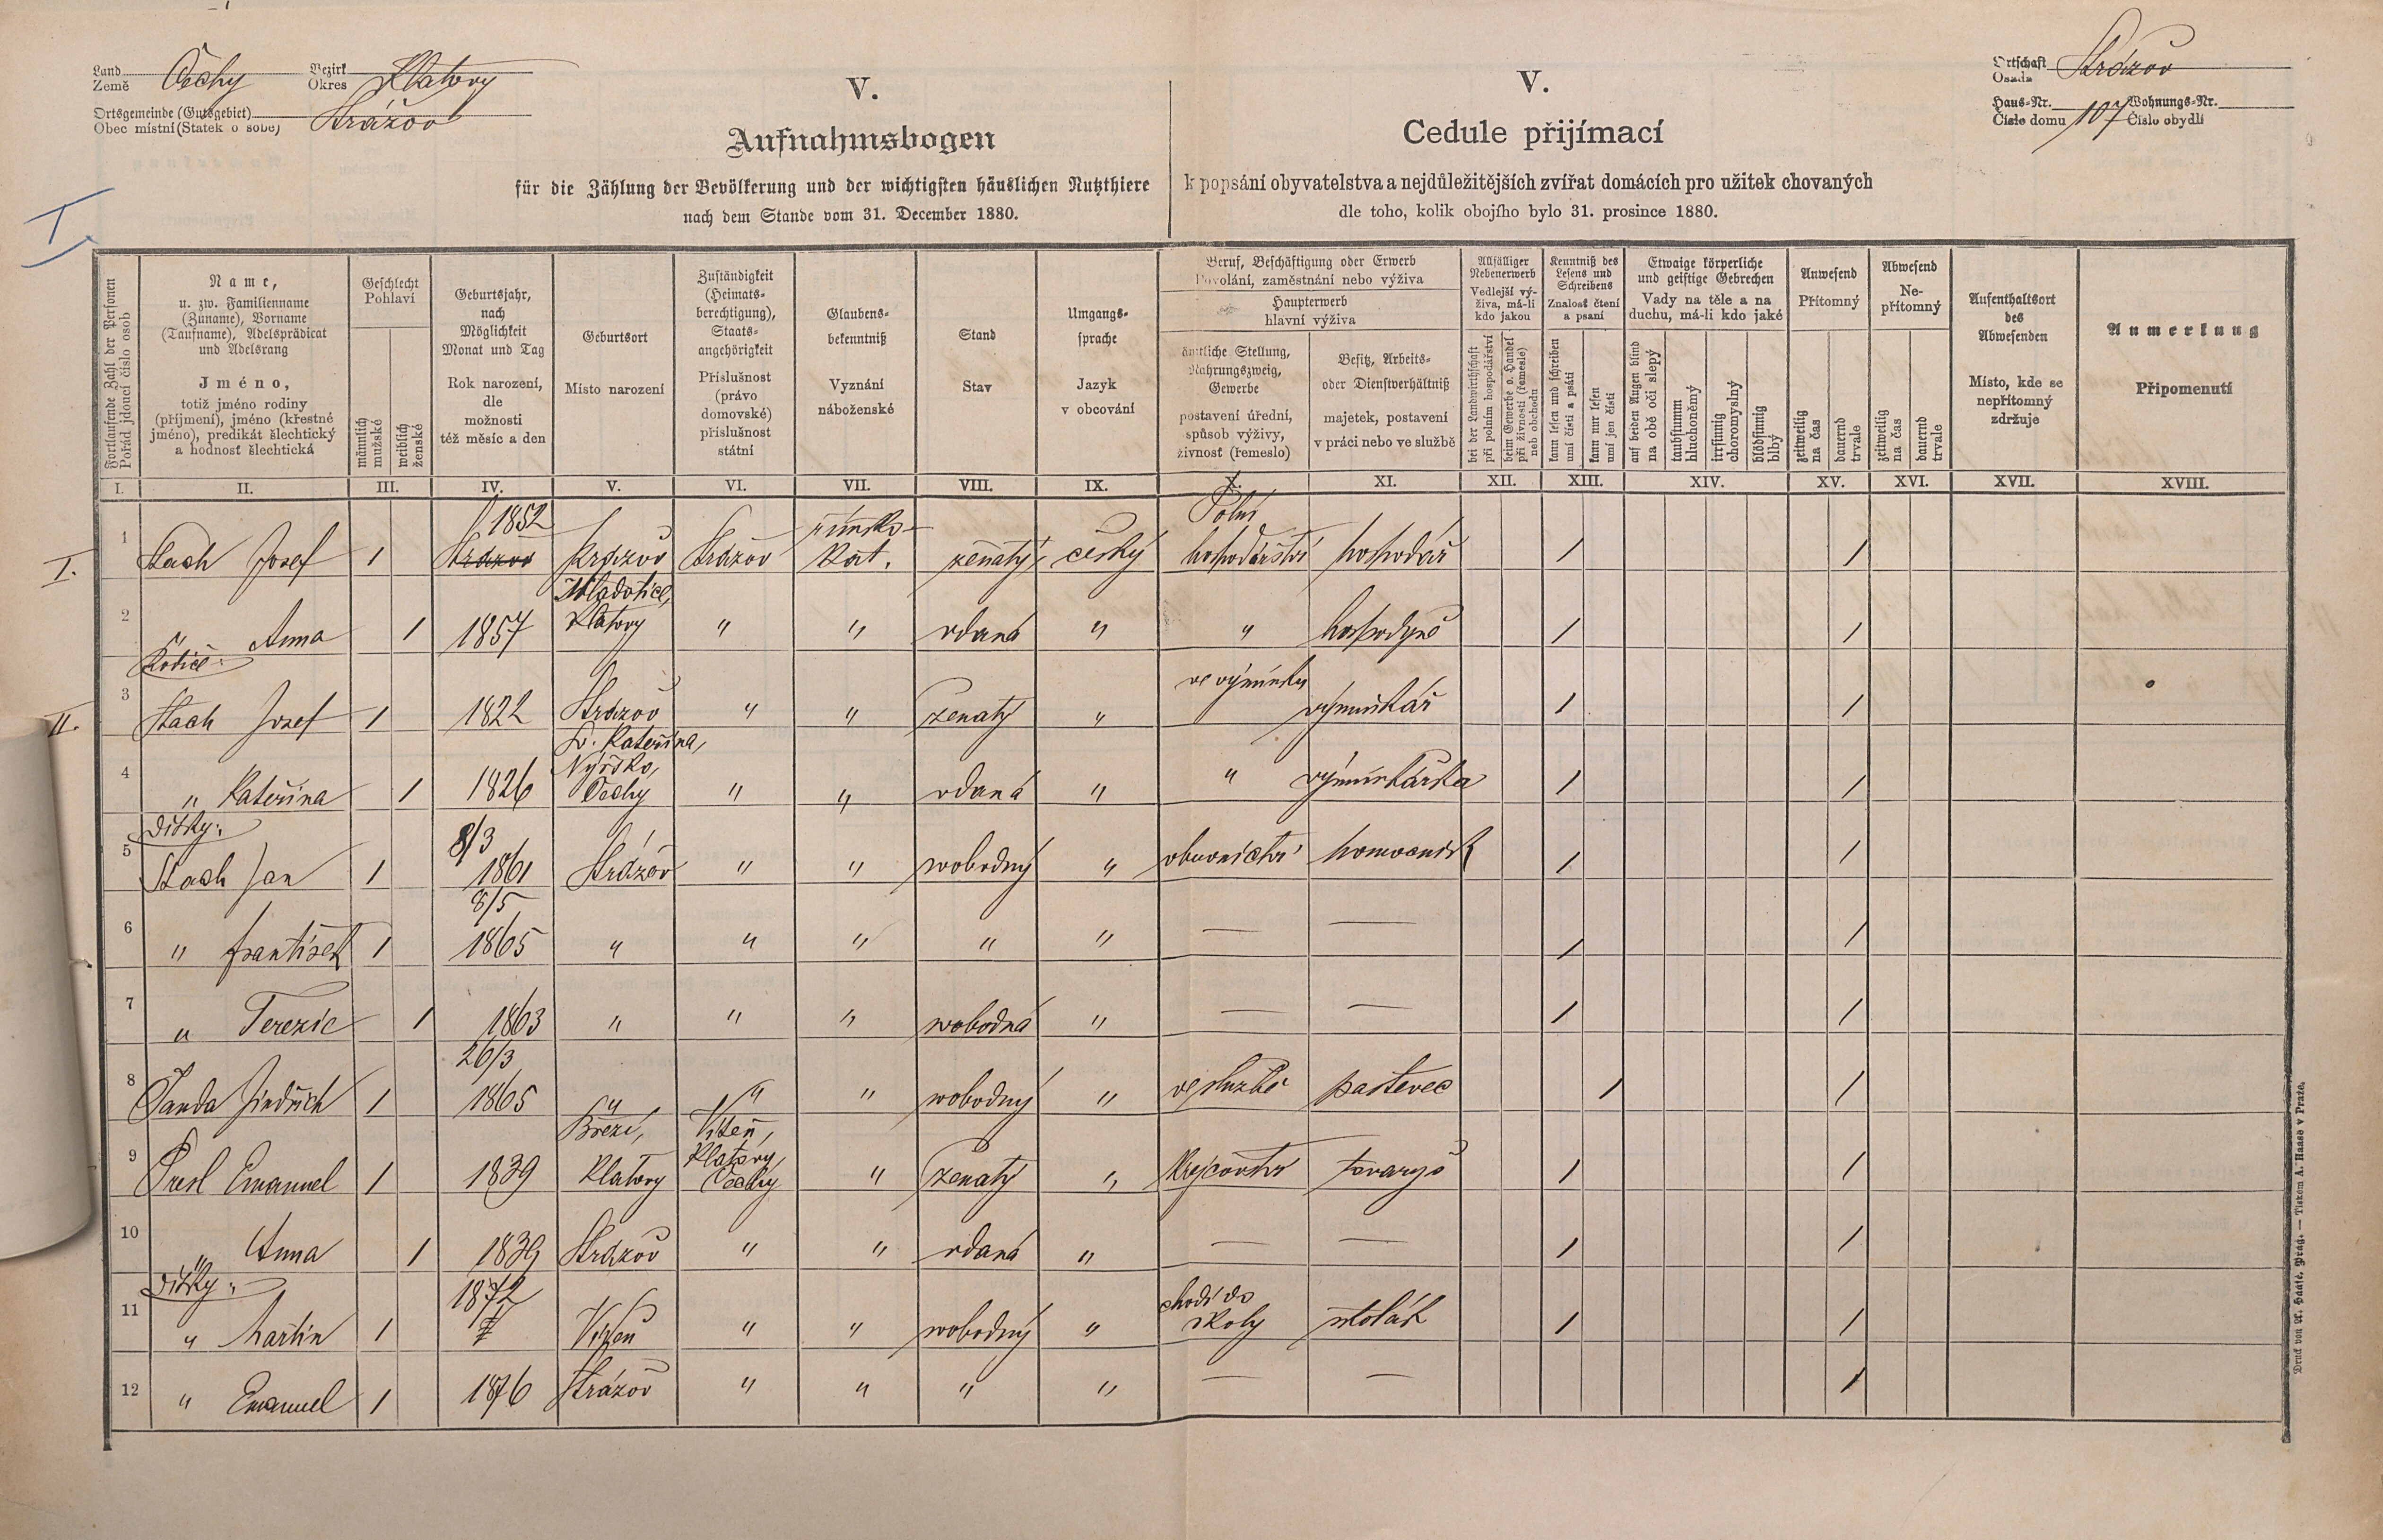 Land Bezirk
Země Čechy Okres Klatovy
Ortsgemeinde (Gutsgebiet)
Obec místní (Statek o sobě) Strážov
Ortschaft
Osada Strážov
Haus-Nr. Wohnungs-Nr.
Číslo domu 107 Číslo obydlí
V.
Aufnahmsbogen
für die Zählung der Bevölkerung und der wichtigsten häuslichen Nutzthiere
nach dem Stande vom 31. December 1880.
V.
Cedule přijímací
k popsání obyvatelstva a nejdůležitějších zvířat domácích pro užitek chovaných
dle toho, kolik obojího bylo 31. prosince 1880.
I
Fortlaufende Zahl der Personen
Pořád jdoucí číslo osob
Name,
u. zw. Familienname
(Zuname), Vorname
(Taufname), Adelsprädicat
und Adelsrang
Jméno,
totiž jméno rodiny
(příjmení), jméno (křestné
jméno), predikát šlechtický
a hodnost šlechtická
Geschlecht
Pohlaví
männlich
mužské
weiblich
ženské
Geburtsjahr,
nach
Möglichkeit
Monat und Tag
Rok narození,
dle
možnosti
též měsíc a den
Geburtsort
Místo narození
Zuständigkeit
(Heimats-
berechtigung),
Staats-
angehörigkeit
Příslušnost
(právo
domovské)
příslušnost
státní
Glaubens-
bekenntniß
Vyznání
náboženské
Stand
Stav
Umgangs-
sprache
Jazyk
v obcování
Beruf, Beschäftigung oder Erwerb
Povolání, zaměstnání nebo výživa
Haupterwerb
hlavní výživa
ämtliche Stellung,
Nahrungszweig,
Gewerbe
postavení úřední,
spůsob výživy,
živnost (řemeslo)
Besitz, Arbeits-
oder Dienstverhältniß
majetek, postavení
v práci nebo ve službě
Allfälliger
Nebenerwerb
Vedlejší vý-
živa, má-li
kdo jakou
bei der Landwirthschaft
při polním hospodářství
beim Gewerbe o. Handel
při živnosti (řemesle)
neb obchodu
Kenntniß des
Lesens und
Schreibens
Znalost čtení
a psaní
kann lesen und schreiben
umí čísti a psáti
kann nur lesen
umí jen čísti
Etwaige körperliche
und geistige Gebrechen
Vady na těle a na
duchu, má-li kdo jaké
auf beiden Augen blind
na obě oči slepý
taubstumm
hluchoněmý
irrsinnig
choromyslný
blödsinnig
blbý
Anwesend
Přítomný
zeitweilig
na čas
dauernd
trvale
Abwesend
Ne-
přítomný
zeitweilig
na čas
dauernd
trvale
Aufenthaltsort
des
Abwesenden
Místo, kde se
nepřítomný
zdržuje
Anmerkung
Připomenutí
I. II. III. IV. V. VI. VII. VIII. IX. X. XI. XII. XIII. XIV. XV. XVI. XVII. XVIII.
1852 římsko- Polní
I. 1 Stach Josef 1 Strážov Strážov Strážov kat. ženatý český hospodářství hospodář / /
Mladotice,
2 Anna 1 1857 Klatovy " " vdaná " " hospodyně / /
Rodiče: ve výminku
II. 3 Stach Josef 1 1822 Strážov " " ženatý " výminkář / /
Sv. Kateřina,
Nýrsko,
4 " Kateřina 1 1826 Čechy " " vdaná " " výminkářka / /
Dítky:
8/3
5 Stach Jan 1 1861 Strážov " " svobodný " obuvnictví / /
8/5
6 " František 1 1865 " " " " " — — / /
7 " Terezie 1 1863 " " " svobodná " — — / /
26/3
8 Panda Jindřich 1 1865 " " " svobodný " ve službě pastevec / /
Březí, Víteň,
Klatovy,
9 Presl Emanuel 1 1839 Klatovy Čechy " ženatý " krejčovství tovaryš / /
10 " Anna 1 1839 Strážov " " vdaná " — — / /
Dítky:
1872 chodí do
11 " Martin 1 Víteň " " svobodný " školy / /
12 " Emanuel 1 1876 Strážov " " " " — — /
Druck von A. Haase, Prag. — Tiskem A. Haase v Praze.